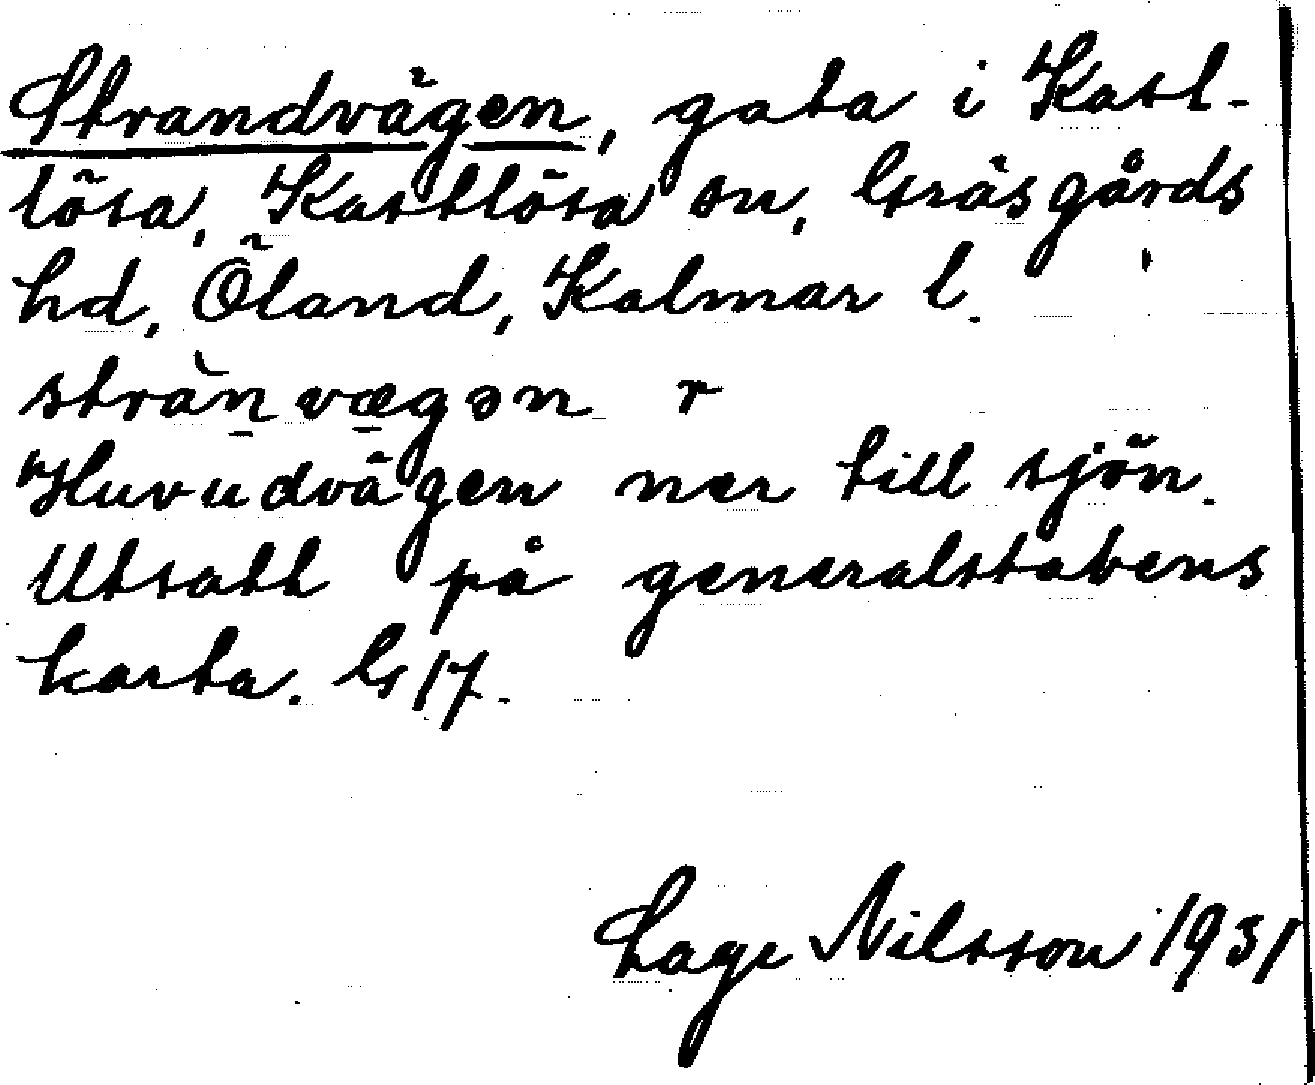 Strandvägen, gata i Kast-
lösa, Kastlösa sn, Gräsgårds
hd, Öland, Kalmar l.
strànvægən r
Huvudvägen ner till sjön.
Utsatt på generalstabens
karta. G 17.
Lage Nilsson 1931